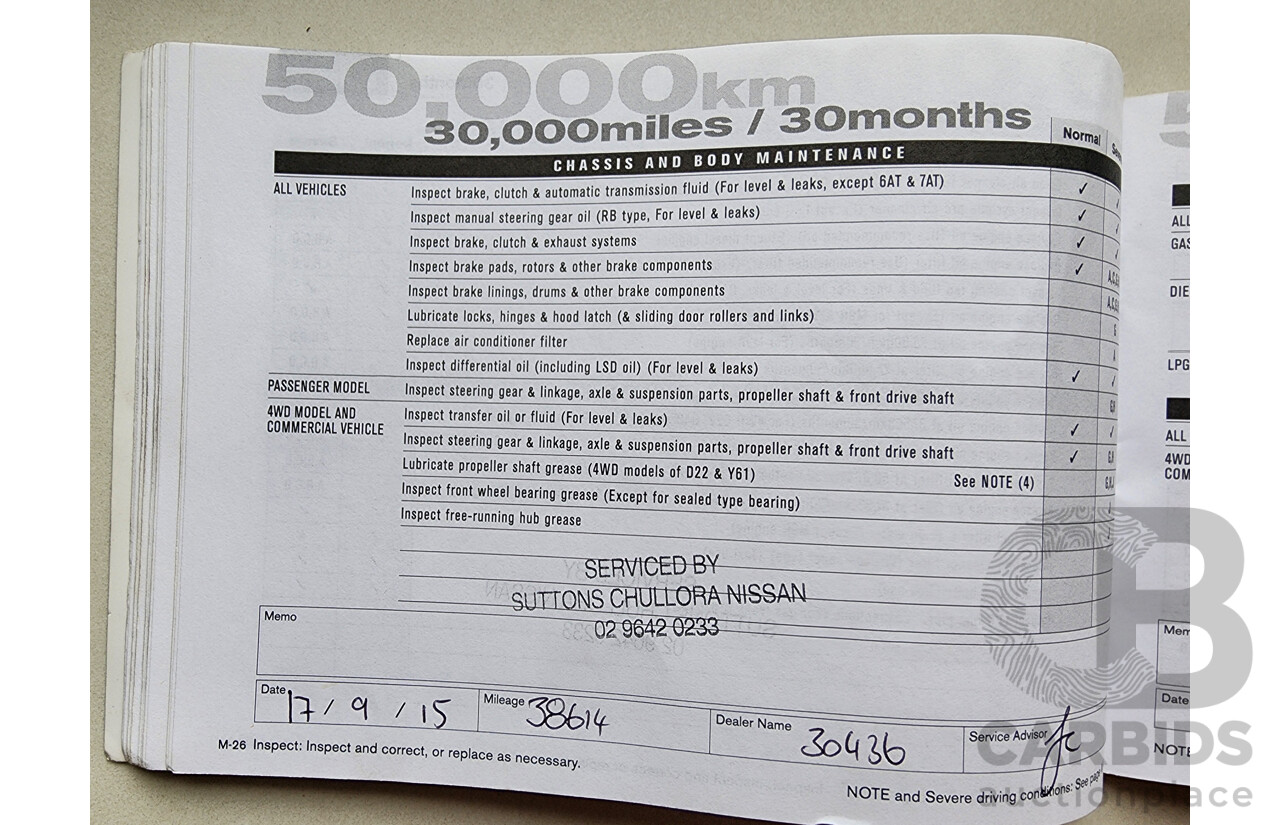 50,000km
30,000miles / 30months
Normal
CHASSIS AND BODY MAINTENANCE
ALL VEHICLES
Inspect brake, clutch & automatic transmission fluid (For level & leaks, except 6AT & 7AT) ✓
Inspect manual steering gear oil (RB type, For level & leaks) ✓
Inspect brake, clutch & exhaust systems ✓
Inspect brake pads, rotors & other brake components ✓
Inspect brake linings, drums & other brake components
Lubricate locks, hinges & hood latch (& sliding door rollers and links)
Replace air conditioner filter
Inspect differential oil (including LSD oil) (For level & leaks) ✓
PASSENGER MODEL
Inspect steering gear & linkage, axle & suspension parts, propeller shaft & front drive shaft
4WD MODEL AND
COMMERCIAL VEHICLE
Inspect transfer oil or fluid (For level & leaks) ✓
Inspect steering gear & linkage, axle & suspension parts, propeller shaft & front drive shaft ✓
Lubricate propeller shaft grease (4WD models of D22 & Y61) See NOTE (4)
Inspect front wheel bearing grease (Except for sealed type bearing)
Inspect free-running hub grease
SERVICED BY
SUTTONS CHULLORA NISSAN
02 9642 0233
Memo
Date 17 / 9 / 15
Mileage 38614
Dealer Name 30436
Service Advisor
M-26 Inspect: Inspect and correct, or replace as necessary.
NOTE and Severe driving conditions: See page
ALL
DIE
LPG
ALL
4WD
COM
Date
CARBIDS
auctionplace